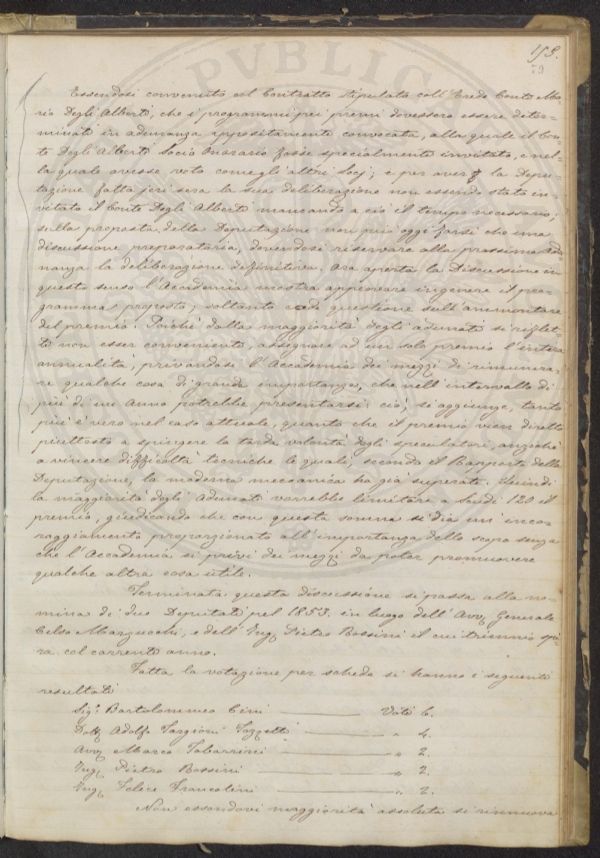 193.
Essendosi convenuto col Contratto stipulato coll'Erede Conte Ma-
rio Degli Alberti, che i programmi pei premi dovessero essere deter-
minati in adunanza appositamente convocata, alla quale il Con-
te Degli Alberti Socio Onorario fosse specialmente invitato, e nel-
la quale avesse voto come gli altri Socj; e per aver la Depu-
tazione fatta jeri sera la sua deliberazione non essendo stato in-
vitato il Conte Degli Alberti mancando a ciò il tempo necessario;
sulla proposta della Deputazione non può oggi farsi che una
discussione preparatoria, dovendosi riservare alla prossima adu-
nanza la deliberazione definitiva. Ora aperta la Discussione in
questo senso l'Accademia mostra approvare in genere il pro-
gramma proposto; soltanto cade questione sull'ammontare
del premio. Poichè dalla maggiorità degli adunati si riflet-
tè non esser conveniente, assegnare ad un solo premio l'intera
annualità, privandosi l'Accademia dei mezzi di rimunera-
re qualche cosa di grande importanza, che nell'intervallo di
più di un anno potrebbe presentarsi: ciò, si aggiunge, tanto
più è vero nel caso attuale, quanto che il premio vien diretto
piuttosto a spingere la tarda volontà degli speculatori, anzichè
a vincere difficoltà tecniche le quali, secondo il Rapporto della
Deputazione, la moderna meccanica ha già superate. Quindi
la maggiorità degli Adunati vorrebbe limitare a Scudi 120 il
premio, giudicando che con questa somma si dia un inco-
raggiamento proporzionato all'importanza dello scopo senza
che l'Accademia si privi dei mezzi da poter promuovere
qualche altra cosa utile.
Terminata questa discussione si passa alla no-
mina di due Deputati pel 1853. in luogo dell'Avv. Generale
Celso Marzucchi, e dell'Ing. Pietro Bossini il cui triennio spi-
ra col corrente anno.
Fatta la votazione per schede si hanno i seguenti
resultati
Sig. Bartolommeo Cini Voti 6.
Dott. Adolfo Targioni Tozzetti " 4.
Avv. Marco Tabarrini " 2.
Ing. Pietro Bossini " 2.
Ing. Felice Francolini " 2.
Non essendovi maggiorità assoluta si rinnuova